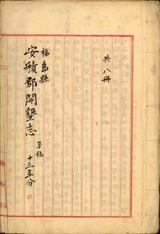 共八冊
福島縣
安積郡開墾志 草稿
十三年分